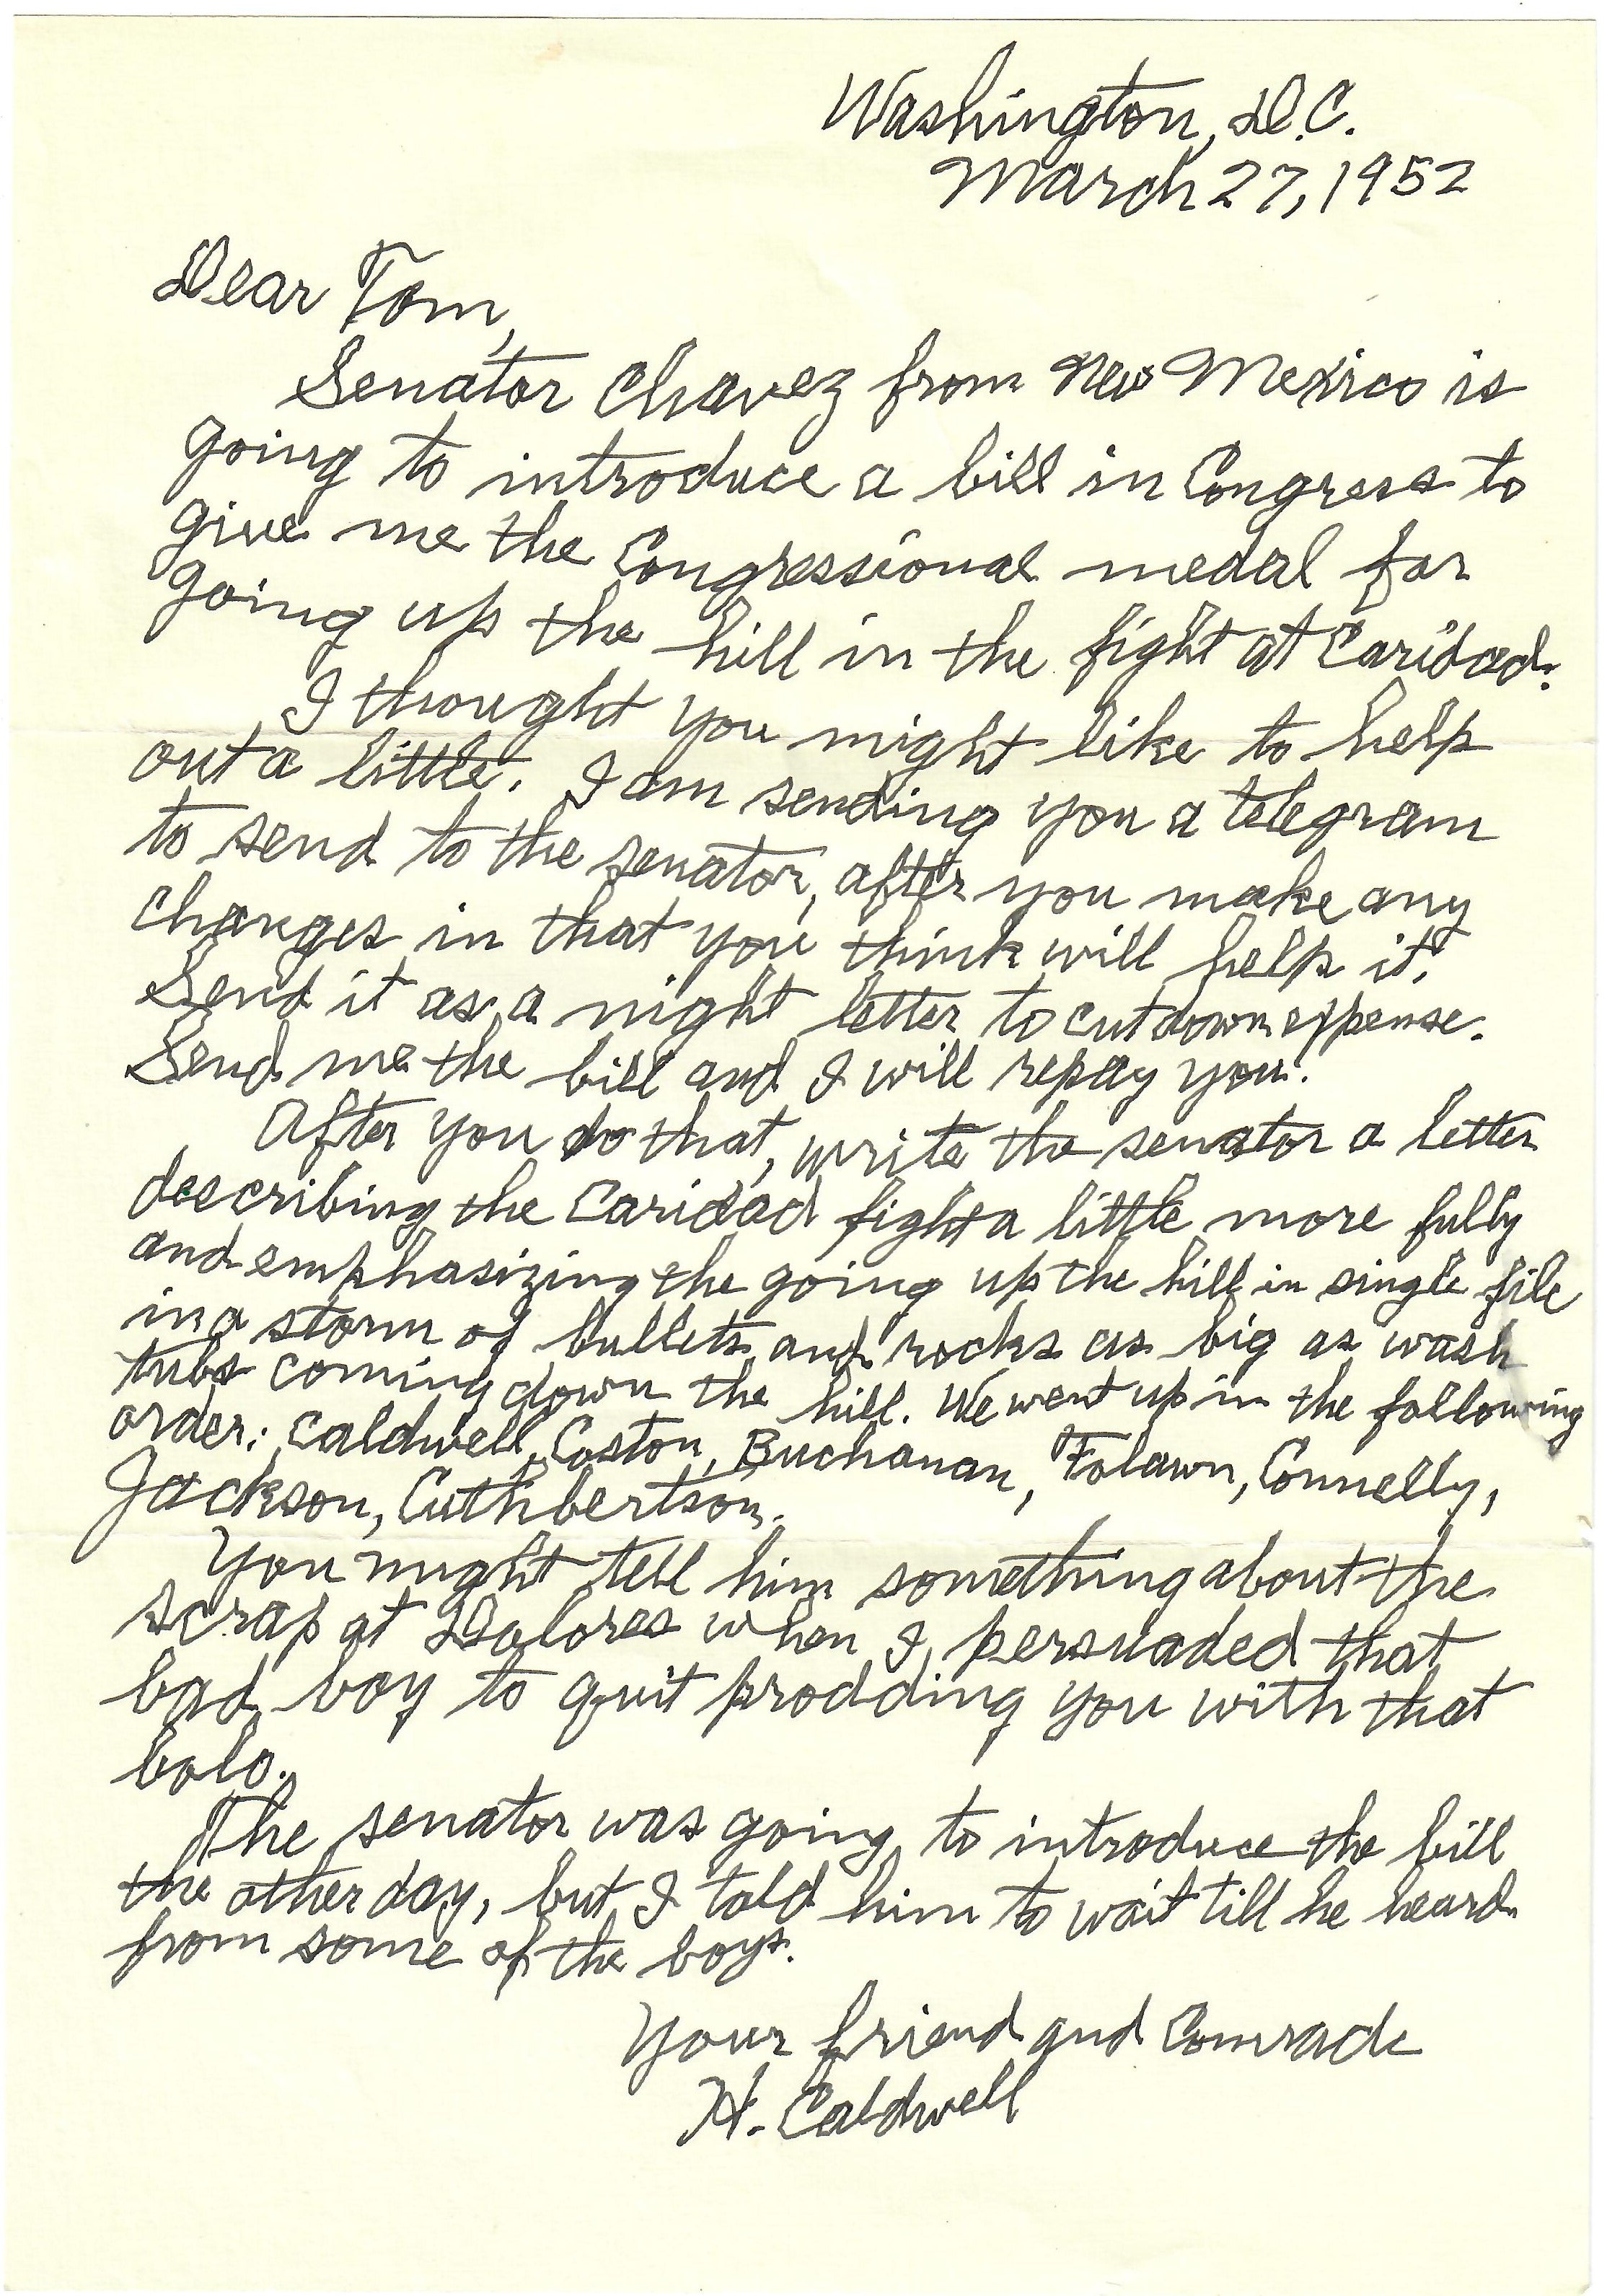 Washington, D.C.
March 27, 1952
Dear Tom,
Senator Chavez from New Mexico is
going to introduce a bill in Congress to
give me the Congressional medal for
going up the hill in the fight at Caridad.
I thought you might like to help
out a little. I am sending you a telegram
to send to the senator, after you make any
changes in that you think will help it.
Send it as a night letter to cut down expense.
Send me the bill and I will repay you.
After you do that, write the senator a letter
describing the Caridad fight a little more fully
and emphasizing the going up the hill in single file
in a storm of bullets and rocks as big as wash
tubs coming down the hill. We went up in the following
order: Caldwell, Coston, Buchanan, Folawn, Connelly,
Jackson, Cuthbertson.
You might tell him something about the
scrap at Dolores when I persuaded that
bad boy to quit prodding you with that
bolo.
The senator was going to introduce the bill
the other day, but I told him to wait till he heard
from some of the boys.
Your friend and Comrade
H. Caldwell